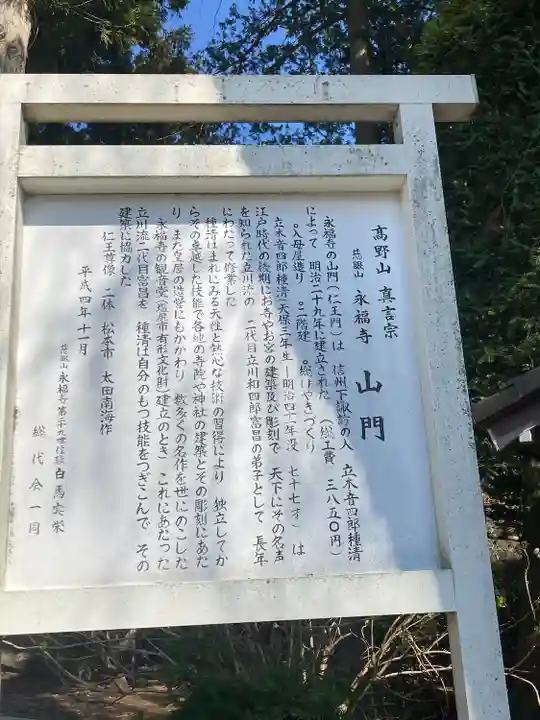 高野山 真言宗
慈眼山 永福寺 山門
永福寺の山門(仁王門)は 信州下諏訪の人 立木音四郎種清
によって 明治二十九年に建立された (総工費 三八五〇円)
○入母屋造り ○二階建 ○総けやきづくり
立木音四郎種清(天保三年生―明治四十一年没 七十七才) は
江戸時代の後期にお寺やお宮の建築及び彫刻で 天下にその名声
を知られた立川流の 二代目立川和四郎富昌の弟子として 長年
にわたって修業した
種清はまれにみる天性と熱心な技術の習得により 独立してか
らその卓越した技能で各地の寺院や神社の建築とその彫刻にあた
り また皇居の造営にもかかわり 数多くの名作を世にのこした
永福寺の観音堂(塩尻市有形文化財)建立のとき これにあたった
立川流二代目富昌を 種清は自分のもつ技能をつぎこんで その
建築に協力した
仁王尊像 二体 松本市 太田南海作
平成四年十一月
慈眼山 永福寺第二十九世住職 白馬宏栄
総代会一同